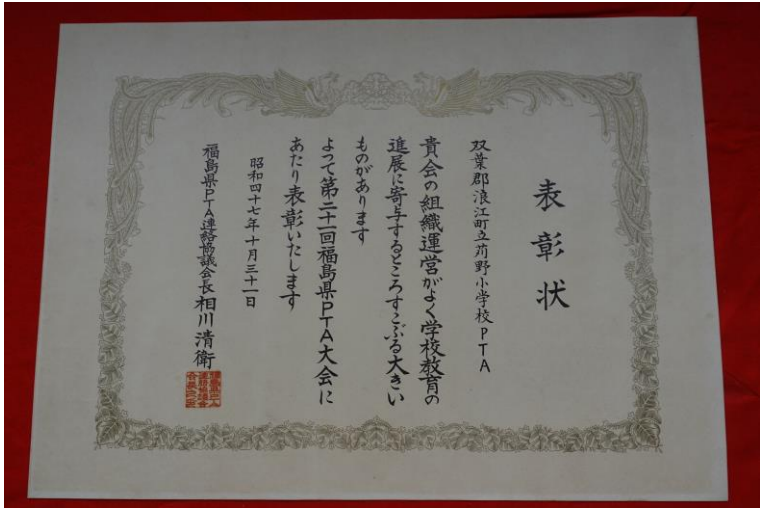 表彰状
双葉郡浪江町立苅野小学校PTA
貴会の組織運営がよく学校教育の
進展に寄与するところすこぶる大きい
ものがあります
よつて第二十一回福島県PTA大会に
あたり表彰いたします
昭和四十七年十月三十一日
福島県PTA連絡協議会長 相川清衛